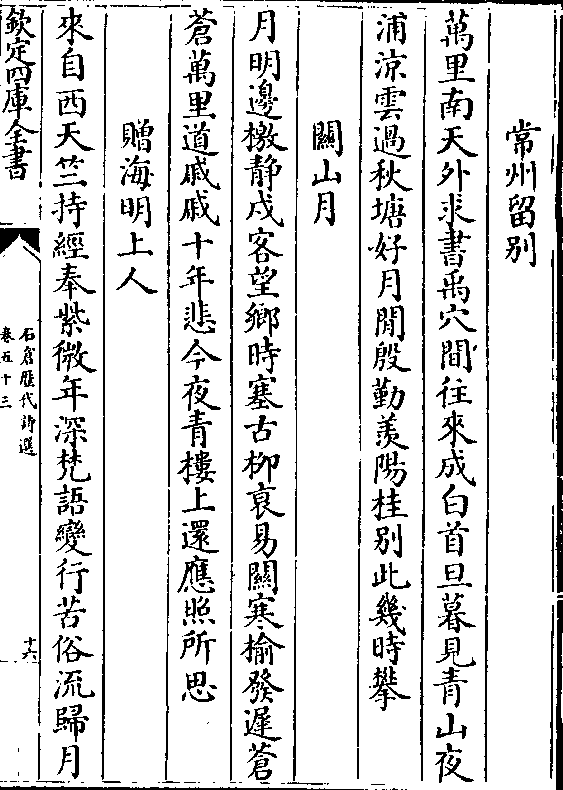 常州留别
萬里南天外求書禹穴間往來成白首旦暮見青山夜
浦涼雲過秋塘好月閒殷勤羨陽桂别此幾時攀
關山月
月明邊檄静戍客望鄉時塞古柳衰易關寒榆發遲蒼
蒼萬里道戚戚十年悲今夜青樓上還應照所思
贈海明上人
來自西天竺持經奉紫微年深梵語變行苦俗流歸月
欽定四庫全書
石倉歴代詩選
卷五十三
十六